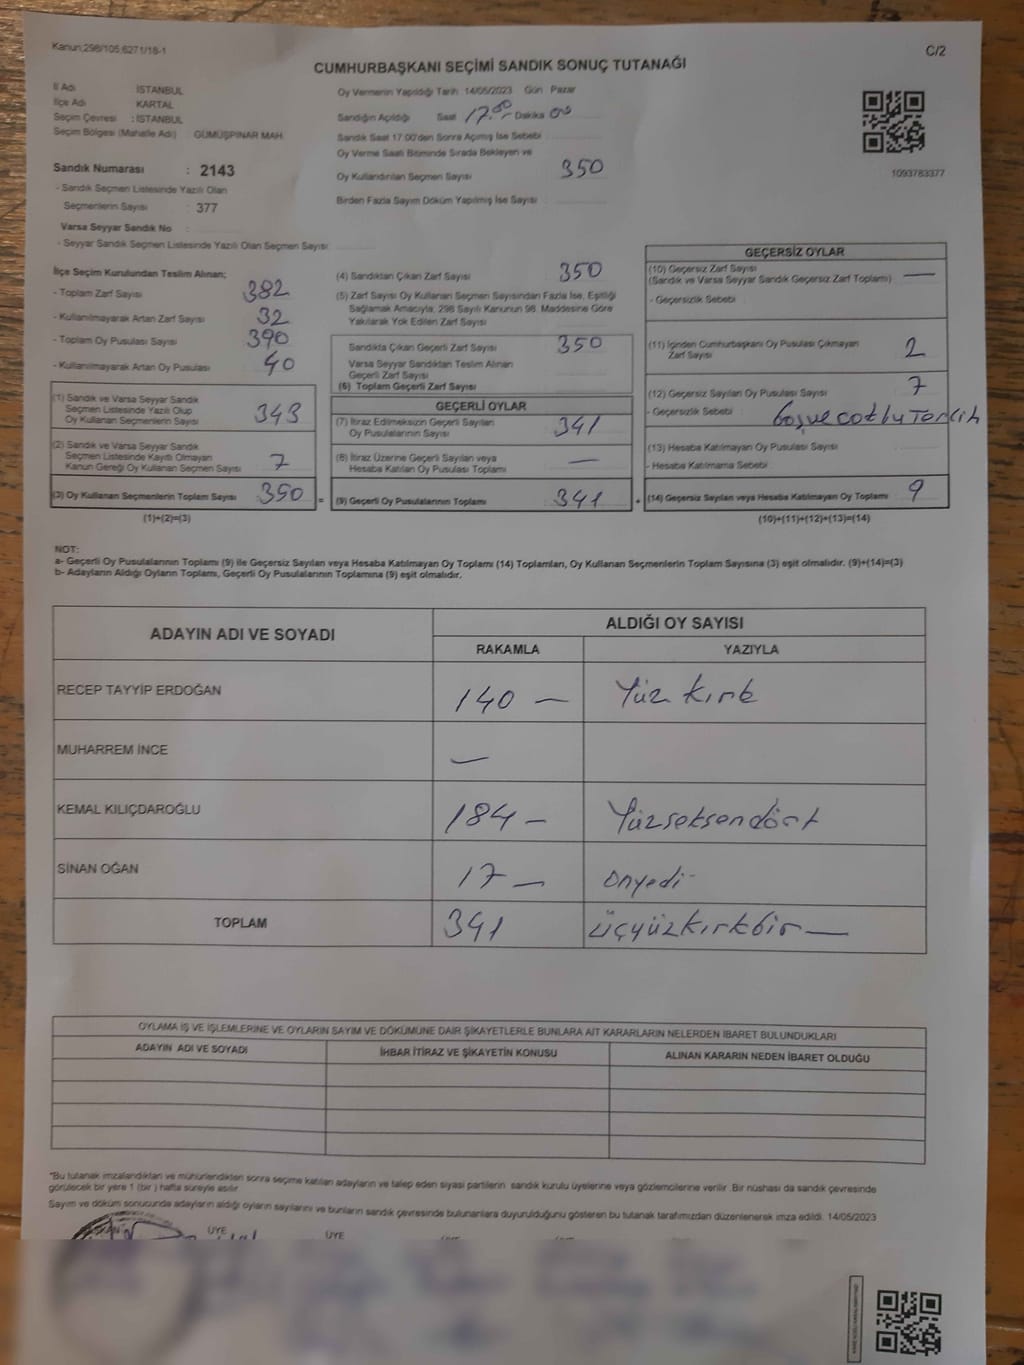 Kanun;298/105,6271/18-1
C/2
CUMHURBAŞKANI SEÇİMİ SANDIK SONUÇ TUTANAĞI
İl Adı İSTANBUL
İlçe Adı KARTAL
Seçim Çevresi : İSTANBUL
Seçim Bölgesi (Mahalle Adı) GÜMÜŞPINAR MAH.
Sandık Numarası : 2143
- Sandık Seçmen Listesinde Yazılı Olan
Seçmenlerin Sayısı : 377
Varsa Seyyar Sandık No :
- Seyyar Sandık Seçmen Listesinde Yazılı Olan Seçmen Sayısı:
Oy Vermenin Yapıldığı Tarih 14/05/2023 Gün Pazar
Sandığın Açıldığı Saat 17.00 Dakika 00
Sandık Saat 17.00'den Sonra Açılmış İse Sebebi
Oy Verme Saati Bitiminde Sırada Bekleyen ve
Oy Kullandırılan Seçmen Sayısı 350
Birden Fazla Sayım Döküm Yapılmış İse Sayısı
1093783377
İlçe Seçim Kurulundan Teslim Alınan;
- Toplam Zarf Sayısı 382
- Kullanılmayarak Artan Zarf Sayısı 32
- Toplam Oy Pusulası Sayısı 390
- Kullanılmayarak Artan Oy Pusulası 40
(1) Sandık ve Varsa Seyyar Sandık
Seçmen Listesinde Yazılı Olup
Oy Kullanan Seçmenlerin Sayısı 343
(2) Sandık ve Varsa Seyyar Sandık
Seçmen Listesinde Kayıtlı Olmayan
Kanun Gereği Oy Kullanan Seçmen Sayısı 7
(3) Oy Kullanan Seçmenlerin Toplam Sayısı 350 =
(1)+(2)=(3)
(4) Sandıktan Çıkan Zarf Sayısı 350
(5) Zarf Sayısı Oy Kullanan Seçmen Sayısından Fazla İse, Eşitliği
Sağlamak Amacıyla; 298 Sayılı Kanunun 98. Maddesine Göre
Yakılarak Yok Edilen Zarf Sayısı
Sandıkta Çıkan Geçerli Zarf Sayısı 350
Varsa Seyyar Sandıktan Teslim Alınan
Geçerli Zarf Sayısı
(6) Toplam Geçerli Zarf Sayısı
GEÇERLİ OYLAR
(7) İtiraz Edilmeksizin Geçerli Sayılan
Oy Pusulalarının Sayısı 341
(8) İtiraz Üzerine Geçerli Sayılan veya
Hesaba Katılan Oy Pusulası Toplamı —
(9) Geçerli Oy Pusulalarının Toplamı 341 +
GEÇERSİZ OYLAR
(10) Geçersiz Zarf Sayısı
(Sandık ve Varsa Seyyar Sandık Geçersiz Zarf Toplamı) —
- Geçersizlik Sebebi :
(11) İçinden Cumhurbaşkanı Oy Pusulası Çıkmayan
Zarf Sayısı 2
(12) Geçersiz Sayılan Oy Pusulası Sayısı 7
- Geçersizlik Sebebi : Boş ve Çoklu Tercih
(13) Hesaba Katılmayan Oy Pusulası Sayısı
- Hesaba Katılmama Sebebi
(14) Geçersiz Sayılan veya Hesaba Katılmayan Oy Toplamı 9
(10)+(11)+(12)+(13)=(14)
NOT:
a- Geçerli Oy Pusulalarının Toplamı (9) ile Geçersiz Sayılan veya Hesaba Katılmayan Oy Toplamı (14) Toplamları, Oy Kullanan Seçmenlerin Toplam Sayısına (3) eşit olmalıdır. (9)+(14)=(3)
b- Adayların Aldığı Oyların Toplamı, Geçerli Oy Pusulalarının Toplamına (9) eşit olmalıdır.
ADAYIN ADI VE SOYADI
ALDIĞI OY SAYISI
RAKAMLA YAZIYLA
RECEP TAYYİP ERDOĞAN 140 — Yüz kırk
MUHARREM İNCE —
KEMAL KILIÇDAROĞLU 184 — Yüzseksendört
SİNAN OĞAN 17 — onyedi
TOPLAM 341 üçyüzkırkbir —
OYLAMA İŞ VE İŞLEMLERİNE VE OYLARIN SAYIM VE DÖKÜMÜNE DAİR ŞİKAYETLERLE BUNLARA AİT KARARLARIN NELERDEN İBARET BULUNDUKLARI
ADAYIN ADI VE SOYADI İHBAR İTİRAZ VE ŞİKAYETİN KONUSU ALINAN KARARIN NEDEN İBARET OLDUĞU
*Bu tutanak imzalandıktan ve mühürlendikten sonra seçime katılan adayların ve talep eden siyasi partilerin sandık kurulu üyelerine veya gözlemcilerine verilir. Bir nüshası da sandık çevresinde
görülecek bir yere 1 (bir ) hafta süreyle asılır.
Sayım ve döküm sonucunda adayların aldığı oyların sayılarını ve bunların sandık çevresinde bulunanlara duyurulduğunu gösteren bu tutanak tarafımızdan düzenlenerek imza edildi. 14/05/2023
ÜYE ÜYE